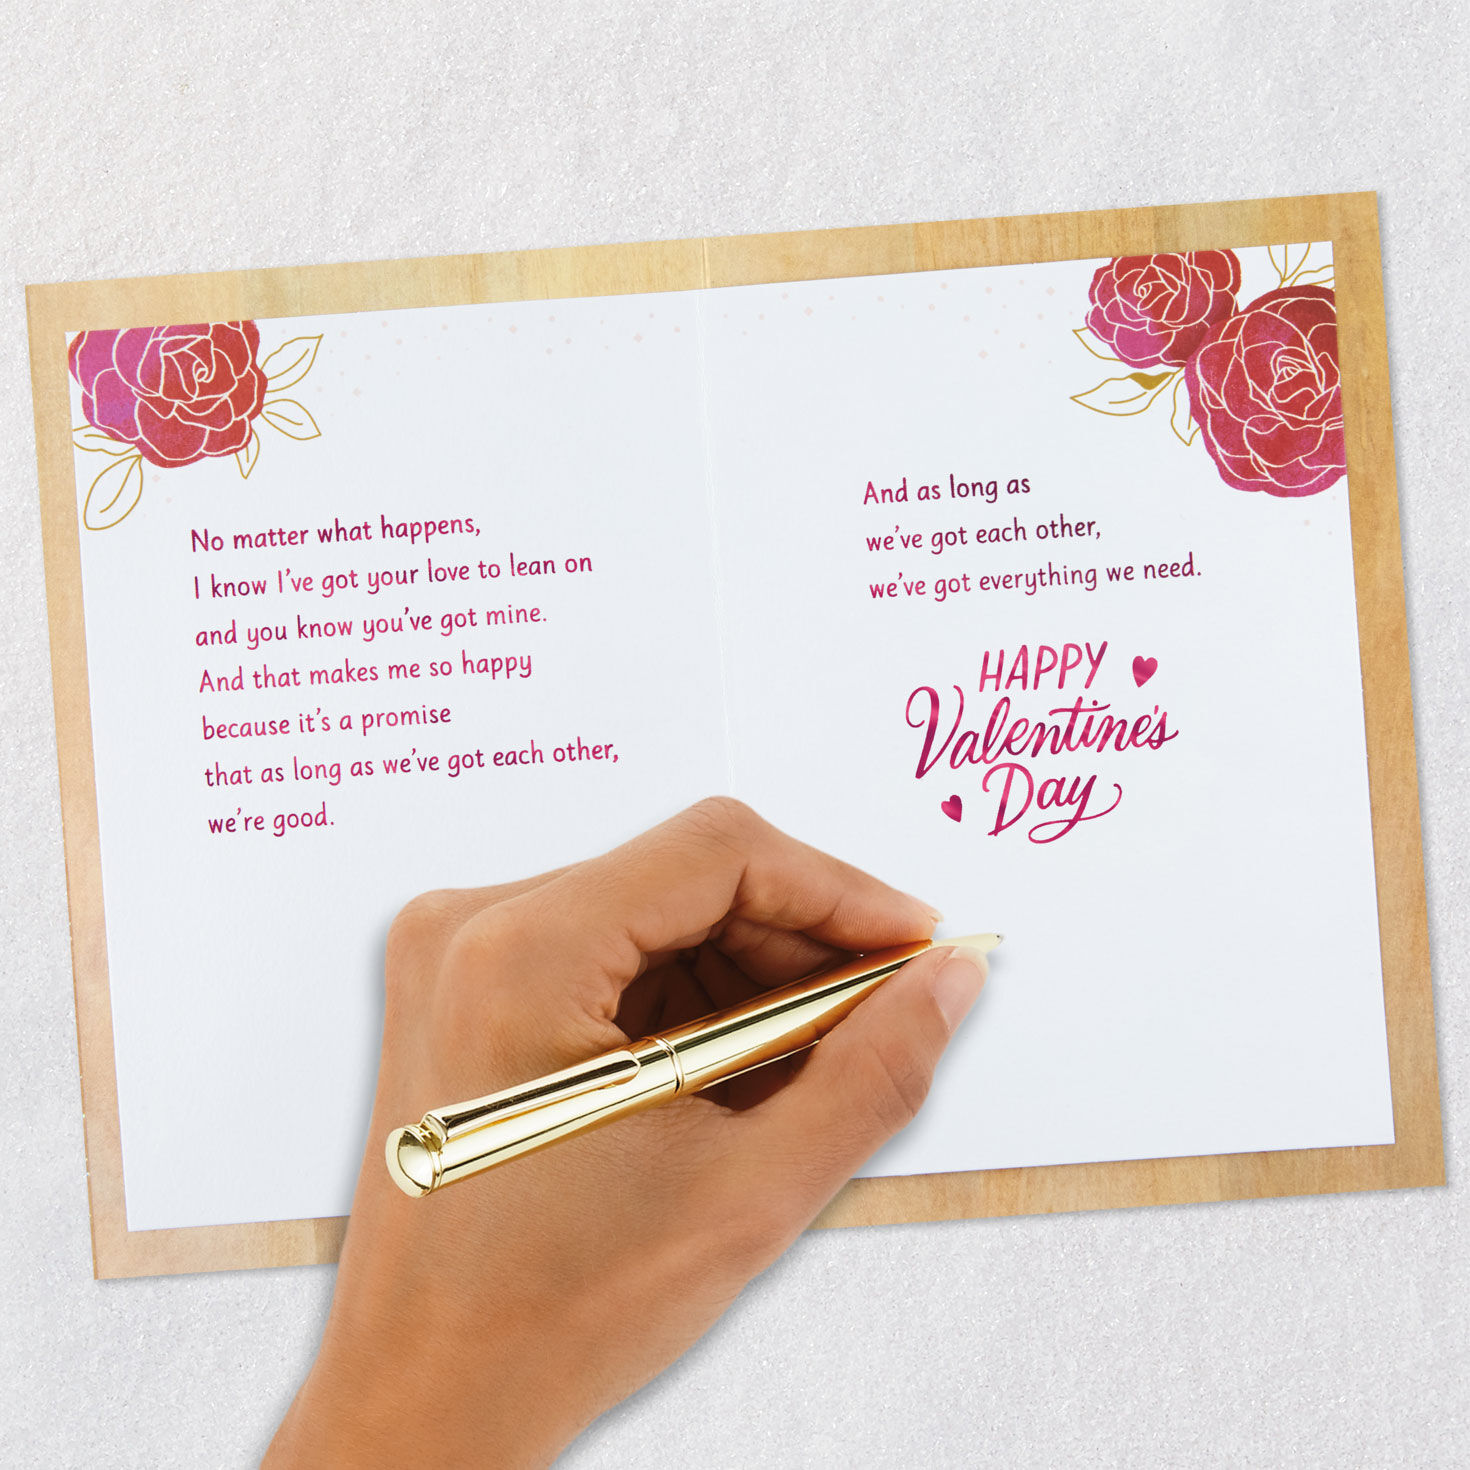 No matter what happens,
I know I've got your love to lean on
and you know you've got mine.
And that makes me so happy
because it's a promise
that as long as we've got each other,
we're good.
And as long as
we've got each other,
we've got everything we need.
HAPPY
Valentine's
Day